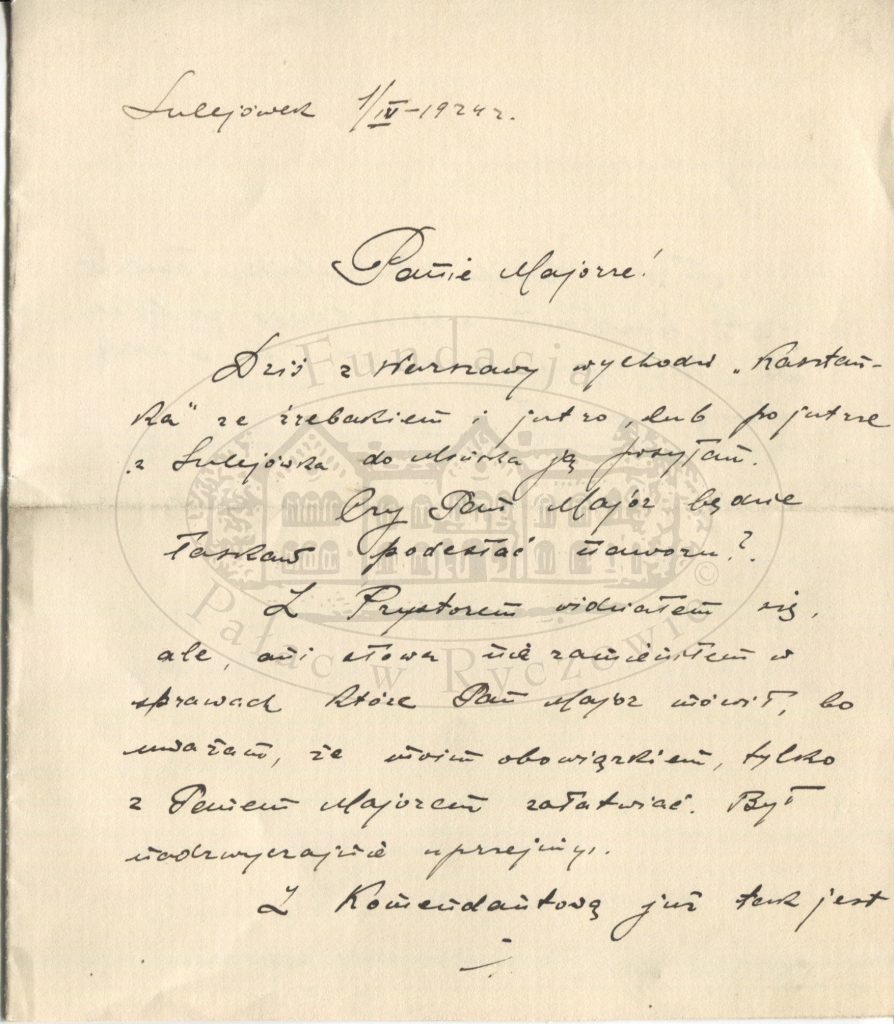 Sulejówek 1/IV-1924 r.
Panie Majorze!
Dziś z Warszawy wychodzi „Kasztan-
ka" ze źrebakiem i jutro, lub pojutrze
z Sulejówka do Mińska ją posyłam.
Czy Pan Major będzie
łaskaw podesłać nawozu?
Z Prystorem widziałem się,
ale, ani słowa nie zamieniłem w
sprawach które Pan Major mówił, bo
uważam, że moim obowiązkiem, tylko
z Panem Majorem załatwiać. Był
nadzwyczajnie uprzejmy.
Z Komendantową już tak jest
Fundacja
Pałac w Ryczowie
©